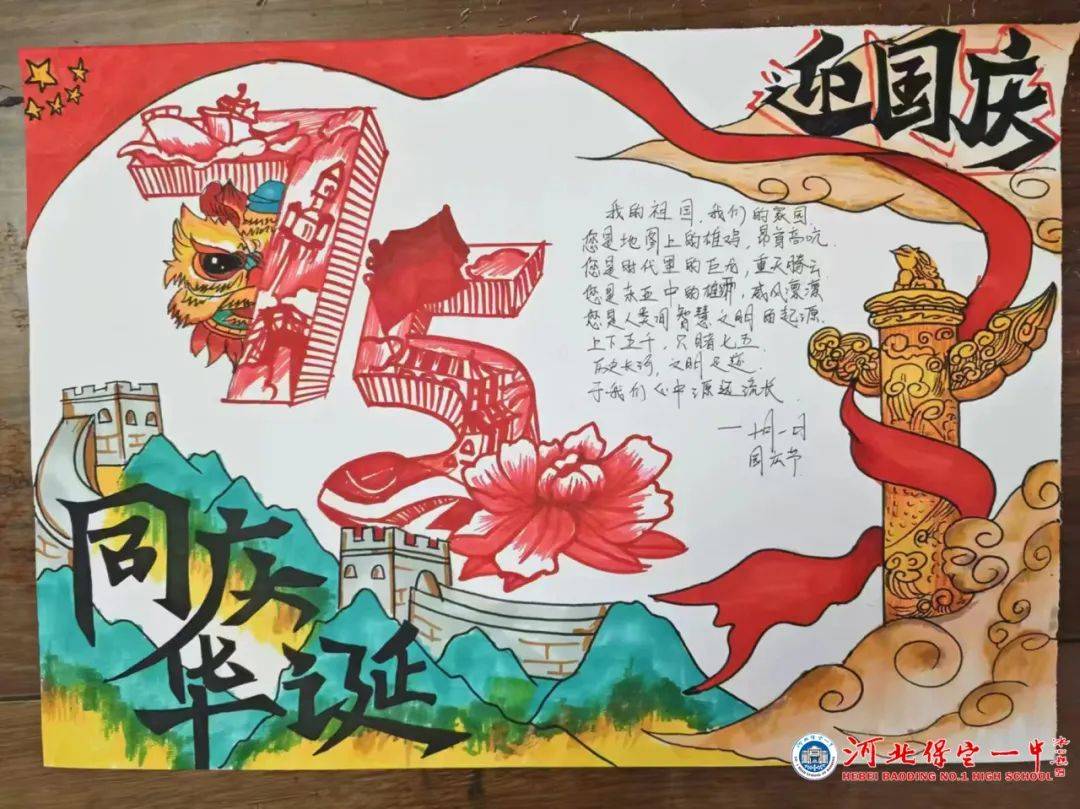 迎国庆
75
我的祖国,我们的家园.
您是地图上的雄鸡,昂首高吭.
您是时代里的巨龙,重天腾云.
您是东亚中的雄狮,威风凛凛
您是人类间智慧文明的起源.
上下五千,只睹七五.
历史长河,文明足迹.
于我们心中源远流长.
一十月一日
国庆节
同庆
华诞
河北保定一中
HEBEI BAODING NO.1 HIGH SCHOOL